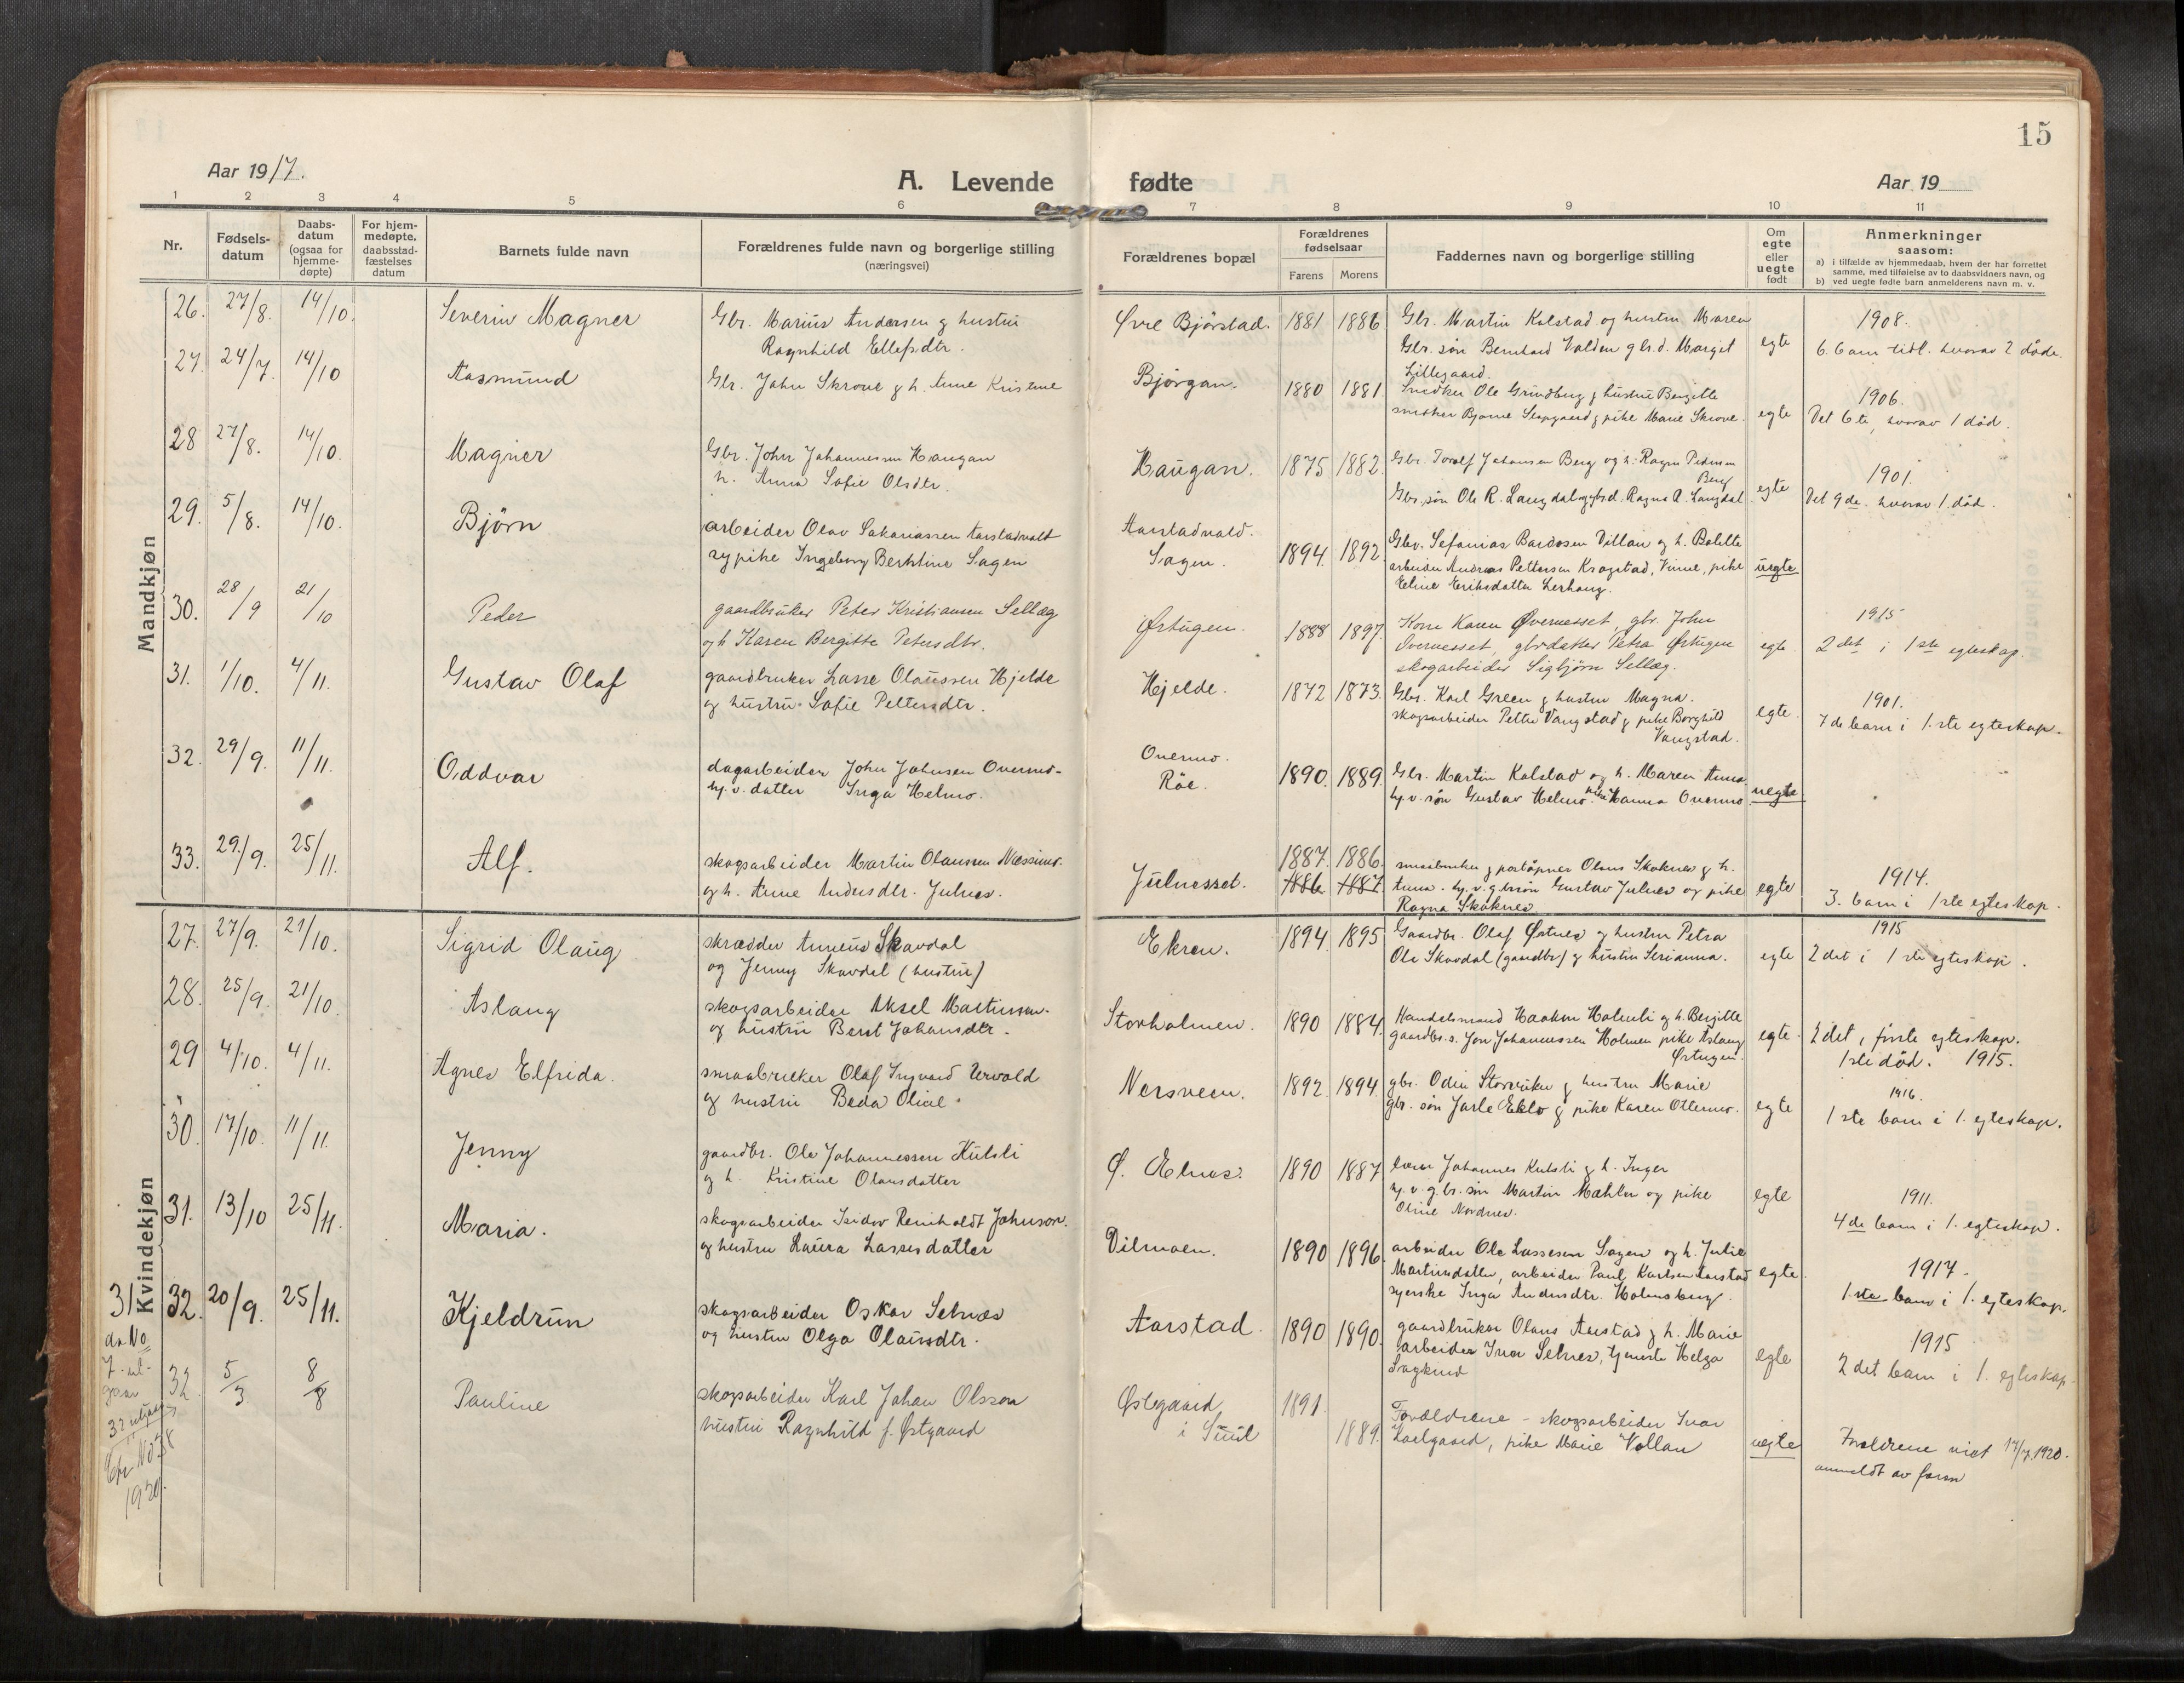 15
Aar 1917.
A. Levende fødte
Aar 19
1 2 3 4 5 6 7 8 9 10 11
Nr.
Fødsels-datum
Daabs-datum (ogsaa for hjemme-døpte)
For hjem-medøpte, daabsstad-fæstelses datum
Barnets fulde navn
Forældrenes fulde navn og borgerlige stilling
(næringsvei)
Forældrenes bopæl
Forældrenes fødselsaar
Farens Morens
Faddernes navn og borgerlige stilling
Om egte eller uegte født
Anmerkninger
saasom:
a) i tilfælde av hjemmedaab, hvem der har forrettet
samme, med tilføielse av to daabsvidners navn, og
b) ved uegte fødte barn anmelderens navn m. v.
Mandkjøn
26. 27/8. 14/10. Severin Magner
Gbr. Marius Andersen g hustru
Ragnhild Ellefsdtr.
Øvre Bjørstad. 1881 1886.
Gbr. Martin Kolstad og hustru Maren
Gbr. søn Bernhard Valden gbr.d. Marget
Lillegaard.
egte
1908.
6. barn tidl. hvorav 2 døde.
27. 24/7. 14/10 Aasmund
Gbr. John Skrove g h. Anne Kristine
Bjørgan. 1880 1881.
Snedker Ole Grundberg g hustru Bergitte
snedker Bjarne Stapgaard g pike Marie Skrove.
egte
1906.
Det 6te, hvorav 1 død.
28 27/8. 14/10. Magner
Gbr. John Johannessen Haugan
h. Anna Sofie Olsdtr.
Haugan. 1875 1882.
Gbr. Torolf Johansen Berg og h. Ragna Pedersen
Berg
Gbr. søn Ole R. Langdal og gbrd. Ragna A. Langdal
egte
1901.
Det 9de. hvorav 1. død.
29. 5/8. 14/10. Bjørn
arbeider Olav Sakariassen Aarstadvald
sypike Ingeborg Berntine Sagen
Aarstadvald.
Sagen. 1894. 1892.
Gbr. Sefanias Bardosen Villan og h. Bolette
arbeider Andreas Pettersen Kragstad, Vinne, pike
Eline Eriksdatter Lerhaug.
uegte
30. 28/9 21/10 Peder
gaardbruker Peter Kristiansen Sellæg
og h Karen Bergitte Petersdtr.
Østugen. 1888 1897.
Kone Karen Øvernesset, gbr. John
Øvernesset, gbrdatter Petra Østugen
skogarbeider Sigbjørn Sellæg.
egte.
1915
2 det i 1ste egteskap.
31. 1/10. 4/11. Gustav Olaf
gaardbruker Lasse Olaussen Hjelde
og hustru Sofie Pettersdtr.
Hjelde. 1872 1873.
Gbr. Karl Green g hustru Magna.
skogsarbeider Petter Vangstad g pike Borghild
Vangstad.
egte.
1901.
7 de barn i 1. ste egteskap.
32. 29/9. 11/11. Oddvar
dagarbeider John Johnsen Overmo-
hj.v. datter Inga Helmo.
Overmo.
Röe. 1890. 1889.
Gbr. Martin Kolstad og h. Maren Anna
hj.v. søn Gustav Helmo. pike Hanna Overmo.
uegte
33. 29./9. 25/11. Alf.
skogsarbeider Martin Olaussen Næssimo.
og h. Anne Andersdtr. Julnes.
Julnesset. 1887. 1886.
1886. 1887.
smaabruker g postaapner Olaus Skoknes g h.
Anna. hj.v. gbrsøn Gustav Julnes og pike
Ragna Skoknes
egte
1914.
3. barn i 1ste egteskap.
Kvindekjøn
27. 27/9. 21/10. Sigrid Olaug
skrædder Anneus Skavdal
og Jenny Skavdal (hustru)
Ekren. 1894. 1895
Gaardbr. Olaf Østnes og hustru Petra
Ole Skavdal (gaardbr) g hustru Serianna.
egte
1915
2 det i 1 ste egteskap.
28. 25/9. 21/10. Aslaug
skogsarbeider Aksel Martinsen.
og hustru Beret Johansdtr.
Storholmen. 1890 1884.
Handelsmand Haakon Holmli og h. Bergitte
gaardbr.s. Jon Johannessen Holmen pike Aslaug
Østugen.
egte.
2 det, første egteskap.
1ste død. 1915.
29 4/10. 4/11. Agnes Elfrida.
smaabruker Olaf Ingvard Urvold
og hustru Beda Oline.
Nersveen. 1892. 1894.
gbr. Odin Storviken g hustru Marie
gbr. søn Jarle Eklo g pike Karen Ottermo.
egte
1916.
1 ste barn i 1. egteskap.
30. 17/10. 11/11. Jenny
gaardbr. Ole Johannessen Kulsli
og h. Kristine Olausdatter
Ø. Elnes. 1890 1887.
lærer Johannes Kulsli g h. Inger
hj.v. g.br. søn Martin Mæhler og pike
Oline Nordnes.
egte
1911.
4de barn i 1. egteskap.
31. 13/10 25/11. Maria.
skogsarbeider Isidor Reinholdt Johnson.
og hustru Laura Lassesdatter
Dilmoen. 1890 1896.
arbeider Ole Lassesen Sagen og h. Julie
Martinsdatter, arbeider Paul Karlsen Aarstad
syerske Inga Andersdtr. Holmsberg.
egte.
1917.
1.ste barn i 1. egteskap.
31 32. 20/9. 25/11. Kjeldrun
skogsarbeider Oskar Selnæs
og hustru Olga Olausdtr.
Aarstad. 1890 1890.
gaardbruker Olaus Aarstad g h. Marie
arbeider Ivar Selnes, tjeneste Helga
egte
1915
2 det barn i 1. egteskap.
da No
7 ut-
gaar
32 utgaar
Cfr. No 38
1920.
32. 5/3 8/8 Pauline
skogsarbeider Karl Johan Olsson
hustru Ragnhild f. Østgaard
Østgaard
i Suul 1891. 1889.
Forældrene - skogsarbeider Ivar
pike Marie Vollan
uegte
Forældrene viet 17/7.1920.
anmeldt av faren